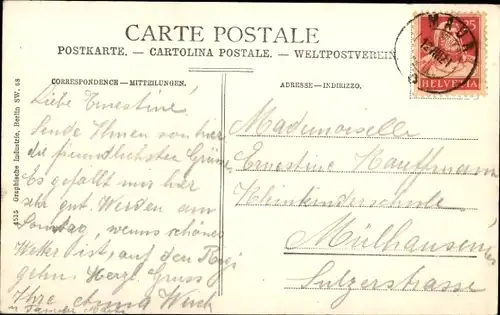 CARTE POSTALE
POSTKARTE. – CARTOLINA POSTALE. – WELTPOSTVEREIN
CORRESPONDENCE – MITTEILUNGEN.
ADRESSE – INDIRIZZO.
4535 Graphische Industrie, Berlin SW. 68
25
HELVETIA
Liebe Ernestine!
Sende Ihnen von hier
die freundlichsten Grüsse
Es gefällt mir hier
sehr gut. Werden am
Sonntag, wenns schönes
Wetter ist, auf den Rigi
gehn. Herzl. Gruss
Ihre
Mademoiselle
Ernestine Kauffmann
Kleinkinderschule
Mülhausen
Sulzerstrasse